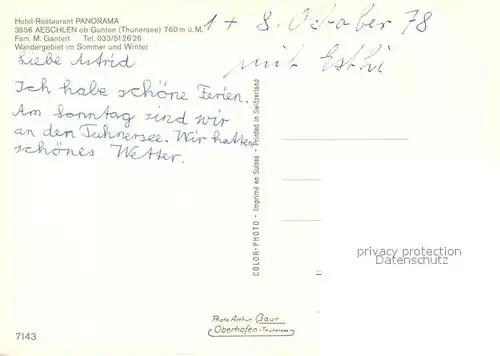 Hotel-Restaurant PANORAMA
3656 AESCHLEN ob Gunten (Thunersee) 760 m ü.M.
Fam. M. Gantert Tel. 033/51 26 26
Wandergebiet im Sommer und Winter
1 + 8. Oktober 78
mit Esthi
Liebe Astrid
Ich habe schöne Ferien.
Am Sonntag sind wir
an den Tuhnersee. Wir hatten
schönes Wetter.
COLOR-PHOTO - Imprimé en Suisse - Printed in Switzerland
privacy protection
Datenschutz
Photo Arthur Baur
Oberhofen-Thunersee
7143